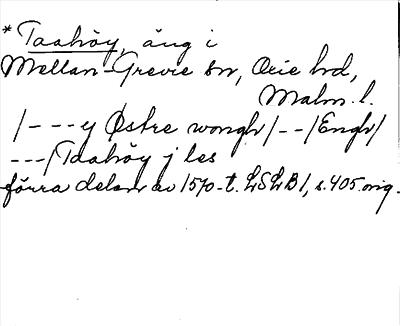 * Taahöy, äng i
Mellan-Grevie sn, Oxie hd,
Malm. l.
/---y Østre wongh/--/Engh/
---/Taahöy j les
förra delen av 1570-t. LSLB1, s. 405. orig.